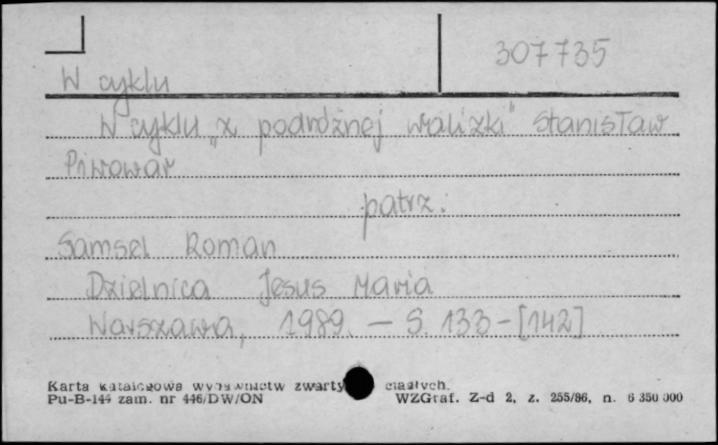 307735
W cyklu
W cyklu „z podróżnej walizki" Stanisław
Piwowar
patrz:
Samsel Roman
Dzielnica Jesus Maria
Warszawa, 1989. – S. 133-[142]
Karta katalogowa wydawnictw zwartych ciągłych.
Pu-B-144 zam. nr 446/DW/ON WZGraf. Z-d 2, z. 255/86, n. 6 350 000